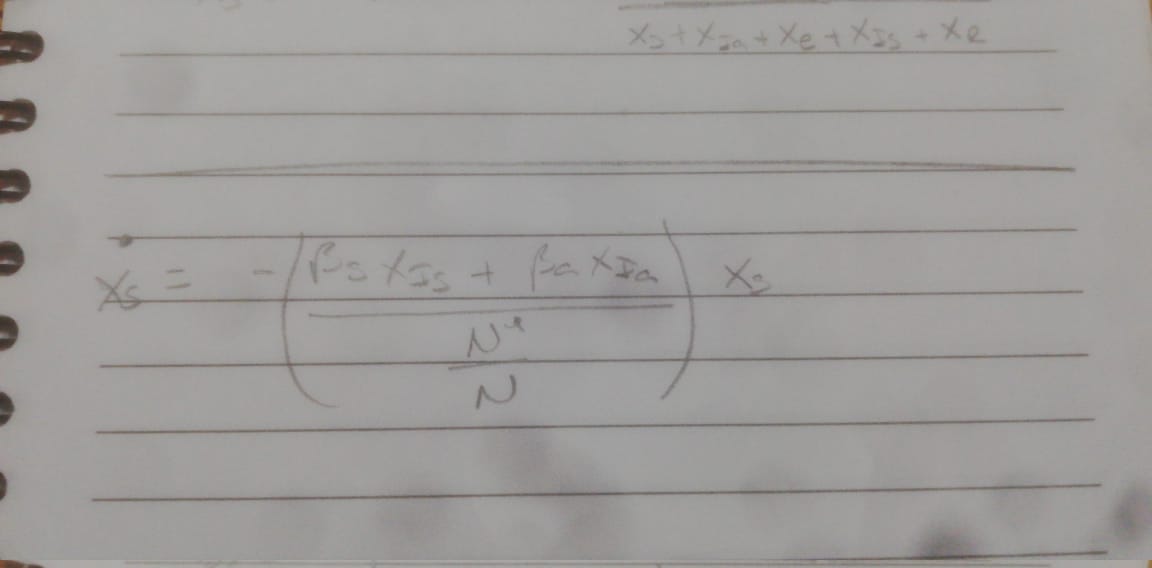 x_s + x_Ia + x_e + x_Is + x_R
ẋ_s = - ( (β_s x_Is + β_a x_Ia) / (N* / N) ) x_s